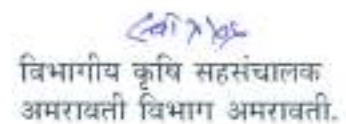 विभागीय कृषि सहसंचालक
अमरावती विभाग अमरावती.